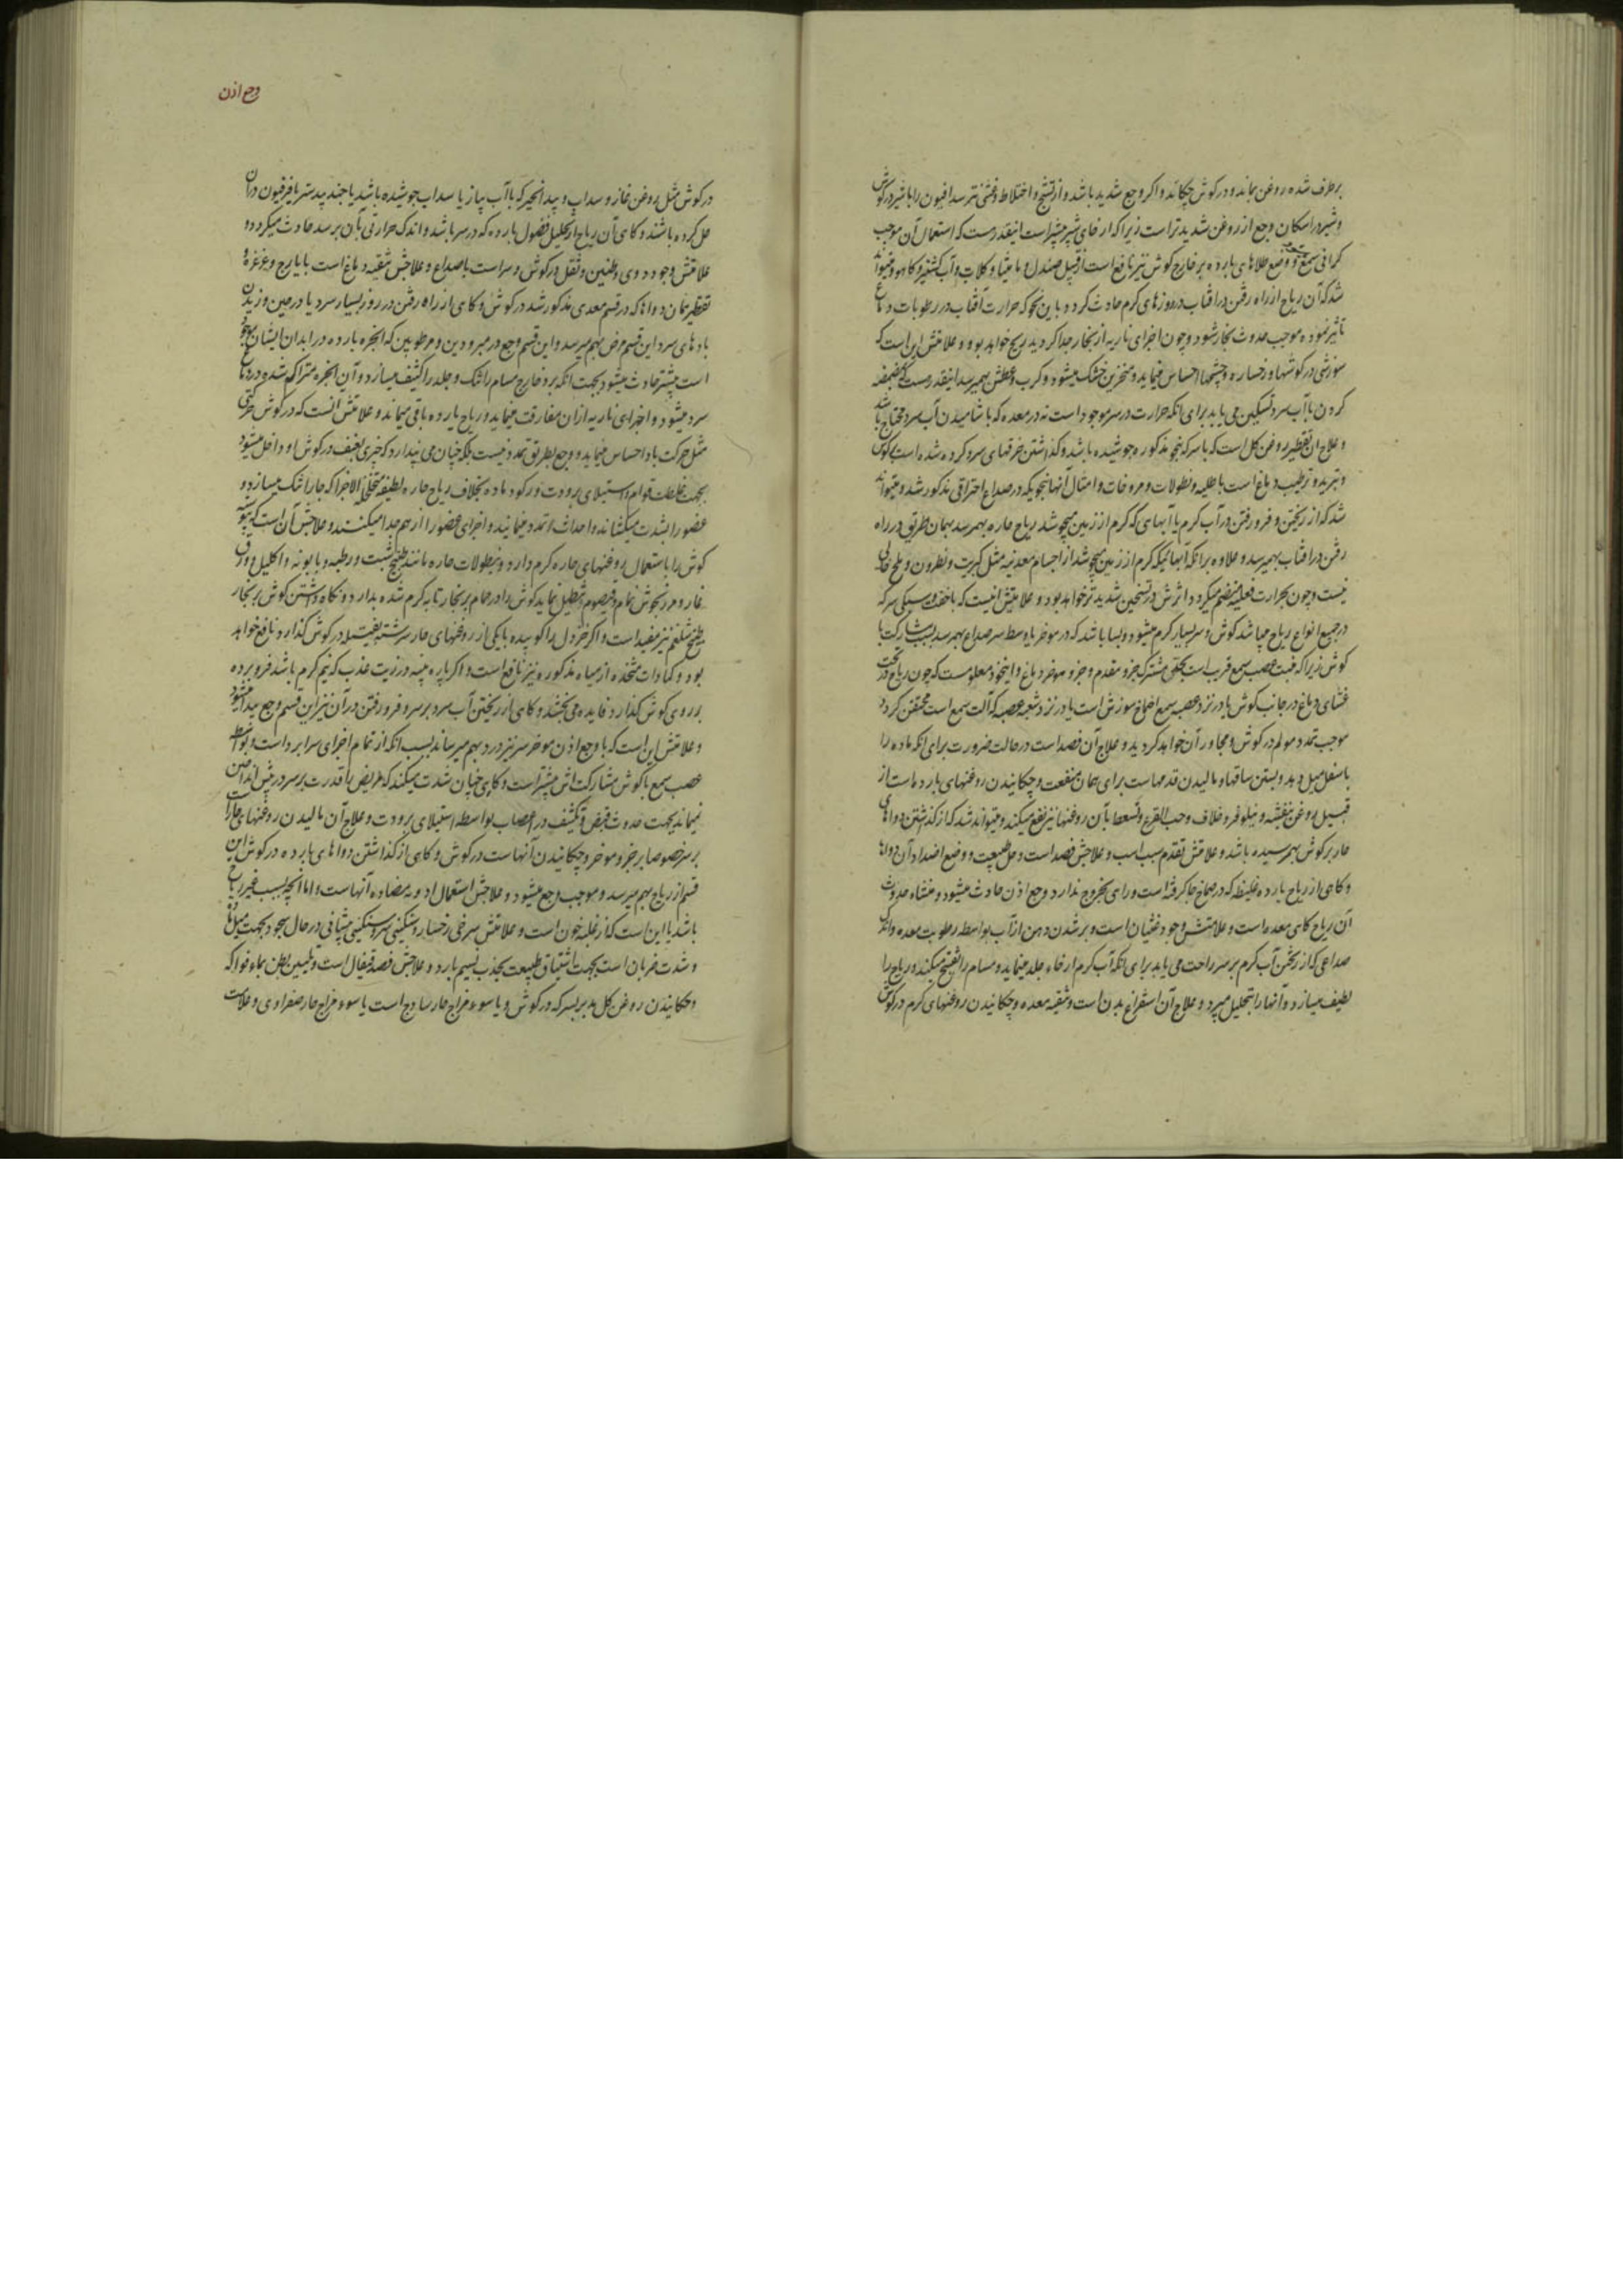 برطرف شده روغن بماند و در کوش چکانند و اکر وجع شدید باشد و از تشنج و اختلاط و غشی ترسد افیون را با شیر در کوش
و شیر در اسکان وجع از روغن شدیدتر است زیرا که ارخای شیر بیشتر است اینقدر هست که استعمال آن موجب
کرانی سمع و وضع طلاهای بارده بر خارج کوش نیز نافع است از قبیل صندل و مامیثا و کلاب و آب کشنیز و کاهو و میتواند
شد که آن ریاح از راه رفتن در افتاب در روزهای کرم حادث کردد باین نحو که حرارت آفتاب در رطوبات دماغ
تاثیر نموده موجب حدوث بخار شود و چون اجزای ناریه از بخار جدا کردید ریح خواهد بود و علامتش این است که
سوزشی در کوشها و رخساره و چشمها احساس نماید و منخرین خشک میشود و کرب و عطش بهمیرسد اینقدر هست که مضمضه
کردن با آب سرد تسکین می یابد برای انکه حرارت در سر موجود است نه در معده که با شامیدن آب سرد محتاج باشد
و علاج ان تقطیر روغن کل است که با سرکه بنحو مذکوره جوشیده باشد و کذاشتن خرقهای سرد کرده شده است بر کوش
و تبرید و ترطیب دماغ است با طلیه و نطولات و مروخات و امثال آنها بنحویکه در صداع احتراقی مذکور شد و میتواند
شد که از ریختن و فرو رفتن در آب کرم یا آبهای که کرم از زمین میجوشد ریاح حاره بهمرسد بهمان طریق در راه
رفتن در افتاب بهمیرسد و علاوه بر انکه آبهائیکه کرم از زمین میجوشد از اجسام معدنیه مثل کبریت و نطرون و ملح خالی
نیست و چون بحرارت فعلیه منضم میکردد اثرش در تسخین شدیدتر خواهد بود و علامتش انیست که با خفت و سبکی سر که
در جمیع انواع ریاح میباشد کوش و سر بسیار کرم میشود و بسا باشد که در موخر یا وسط سر صداع بهمرسد بسبب مشارکت با
کوش زیرا که منبت عصب سمع قریب است بحد مشترک جزو مقدم و جزو موخر دماغ و اینخود معلومست که چون ریاح در تحت
غشای دماغ در جانب کوش یا در نزد عصبه سمع اصماخ سوزش است یا در نزد شعبه عصب که آلت سمع است محتقن کردد
موجب تمدد مولم در کوش و مجاور آن خواهد کردید و علاج آن فصد است در حالت ضرورت برای انکه ماده را
باسفل میل دهد و بستن ساقها و مالیدن قدمهاست برای همان منفعت و چکانیدن روغنهای بارده است از
قبیل روغن بنفشه و نیلوفر و خلاف و حب القرع و تسعط بآن روغنها نیز نفع میکند و میتواند شد که از کذاشتن دواهای
حار بر کوش بهمرسیده باشد و علامتش تقدم سبب است و علاجش فصد است و حل طبیعت و وضع اضداد آن دواها
و کاهی از ریاح بارده غلیظه که در صماخ جا کرفته است و راهی بخروج ندارد وجع اذن حادث میشود و منشاء حدوث
آن ریاح کاهی معده است و علامتش وجود غثیان است و پر شدن دهن از آب بواسطه رطوبت معده و انکه
صداعی که از ریختن آب کرم بر سر راحت می یابد برای انکه آب کرم ارخاء جلد مینماید و مسام را تفتیح میکند و ریاح را
لطیف میسازد و آنها را تحلیل میبرد و علاج آن استفراغ بدن است و تنقیه معده و چکانیدن روغنهای کرم در کوش
وجع اذن
در کوش مثل روغن غار و سداب و بیدانجیر که با آب پیاز یا سداب جوشیده باشد یا جندبیدستر یا فرفیون در آن
حل کرده باشند و کاهی آن ریاح از تحلیل فضول بارده که در سر باشد و اندک حرارتی بآن برسد حادث میکردد و
علامتش وجود دوی و طنین و ثقل در کوش و سر است با صداع و علاجش تنقیه دماغ است بایارج و غرغره و
تقطیر همان دواها که در قسم معدی مذکور شد در کوش و کاهی از راه رفتن در روز بسیار سرد یا در حین وزیدن
بادهای سرد این قسم مرض بهم میرسد و این قسم وجع در مبرودین و مرطوبین که ابخره بارده در ابدان ایشان موجود
است بیشتر حادث میشود بجهت انکه برد خارج مسام را تنک و جلد را کثیف میسازد و آن ابخره متراکم شده در دماغ
سرد میشود و اجزای ناریه از ان مفارقت مینماید و ریاح بارده باقی میماند و علامتش انست که در کوش حرکتی
مثل حرکت باد احساس مینماید و وجع بطریق تمدد نیست بلکه چنان می پندارد که چیزی بعنف در کوش او داخل میشود
بجهت غلظت قوام و استیلای برودت و رکود ماده بخلاف ریاح حاره لطیفه متخلخلة الاجزا که جا را تنک میسازد و
عضو را بشدت میکشاند و احداث تمدد مینماید و اجزای عضو را از هم جدا میکنند و علاجش آن است که پیوسته
کوش را باستعمال روغنهای حاره کرم دارد و بنطولات حاره مانند طبیخ شبت و رطبه و بابونه و اکلیل و ورق
غار و مرزنجوش نمام و قیصوم تنطیل نماید کوش را در حمام بر بخار تابه کرم شده بدارد و نکاه داشتن کوش بر بخار
طبیخ شلغم نیز مفید است و اکر خردل را کوبیده با یکی از روغنهای حار سرشته بفتیله در کوش کذارد نافع خواهد
بود و کمادات متخذه از میاه مذکوره نیز نافع است و اکر پاره پنبه در زیت عذب که نیم کرم باشد فرو برده
بر روی کوش کذارد فایده می بخشد و کاهی از ریختن آب سرد بر سر و فرو رفتن در آن نیز این قسم وجع پیدا میشود
و علامتش این است که با وجع اذن موخر سر نیز درد بهم میرساند بسبب انکه از تمام اجزای سر ابرد است و بواسطه
عصب سمع با کوش مشارکت اش بیشتر است و کاهی چنان شدت میکند که مریض را قدرت بر سر در پیش انداختن
نمیماند بجهت حدوث قبض و تکثیف در اعصاب بواسطه استیلای برودت و علاج آن مالیدن روغنهای حار است
بر سر خصوصا بر جزو موخر و چکانیدن آنهاست در کوش و کاهی از کذاشتن دواهای بارده در کوش این
قسم از ریاح بهم میرسد و موجب وجع میشود و علاجش استعمال ادویه مضاده آنهاست و اما آنچه بسبب غیر ریاح
باشد یا این است که از غلبه خون است و علامتش سرخی رخسار و سنکینی سر و سنکینی پیشانی در حال سجود بجهت میل ماده
و شدت ضربان است بجهت اشتیاق طبیعت بجذب نسیم بارد و علاجش فصد قیفال است و تلیین بطن بماء فواکه
و چکانیدن روغن کل مدبر بسرکه در کوش و یا سوء مزاج حار ساذج است یا سوء مزاج حار صفراوی و علامت